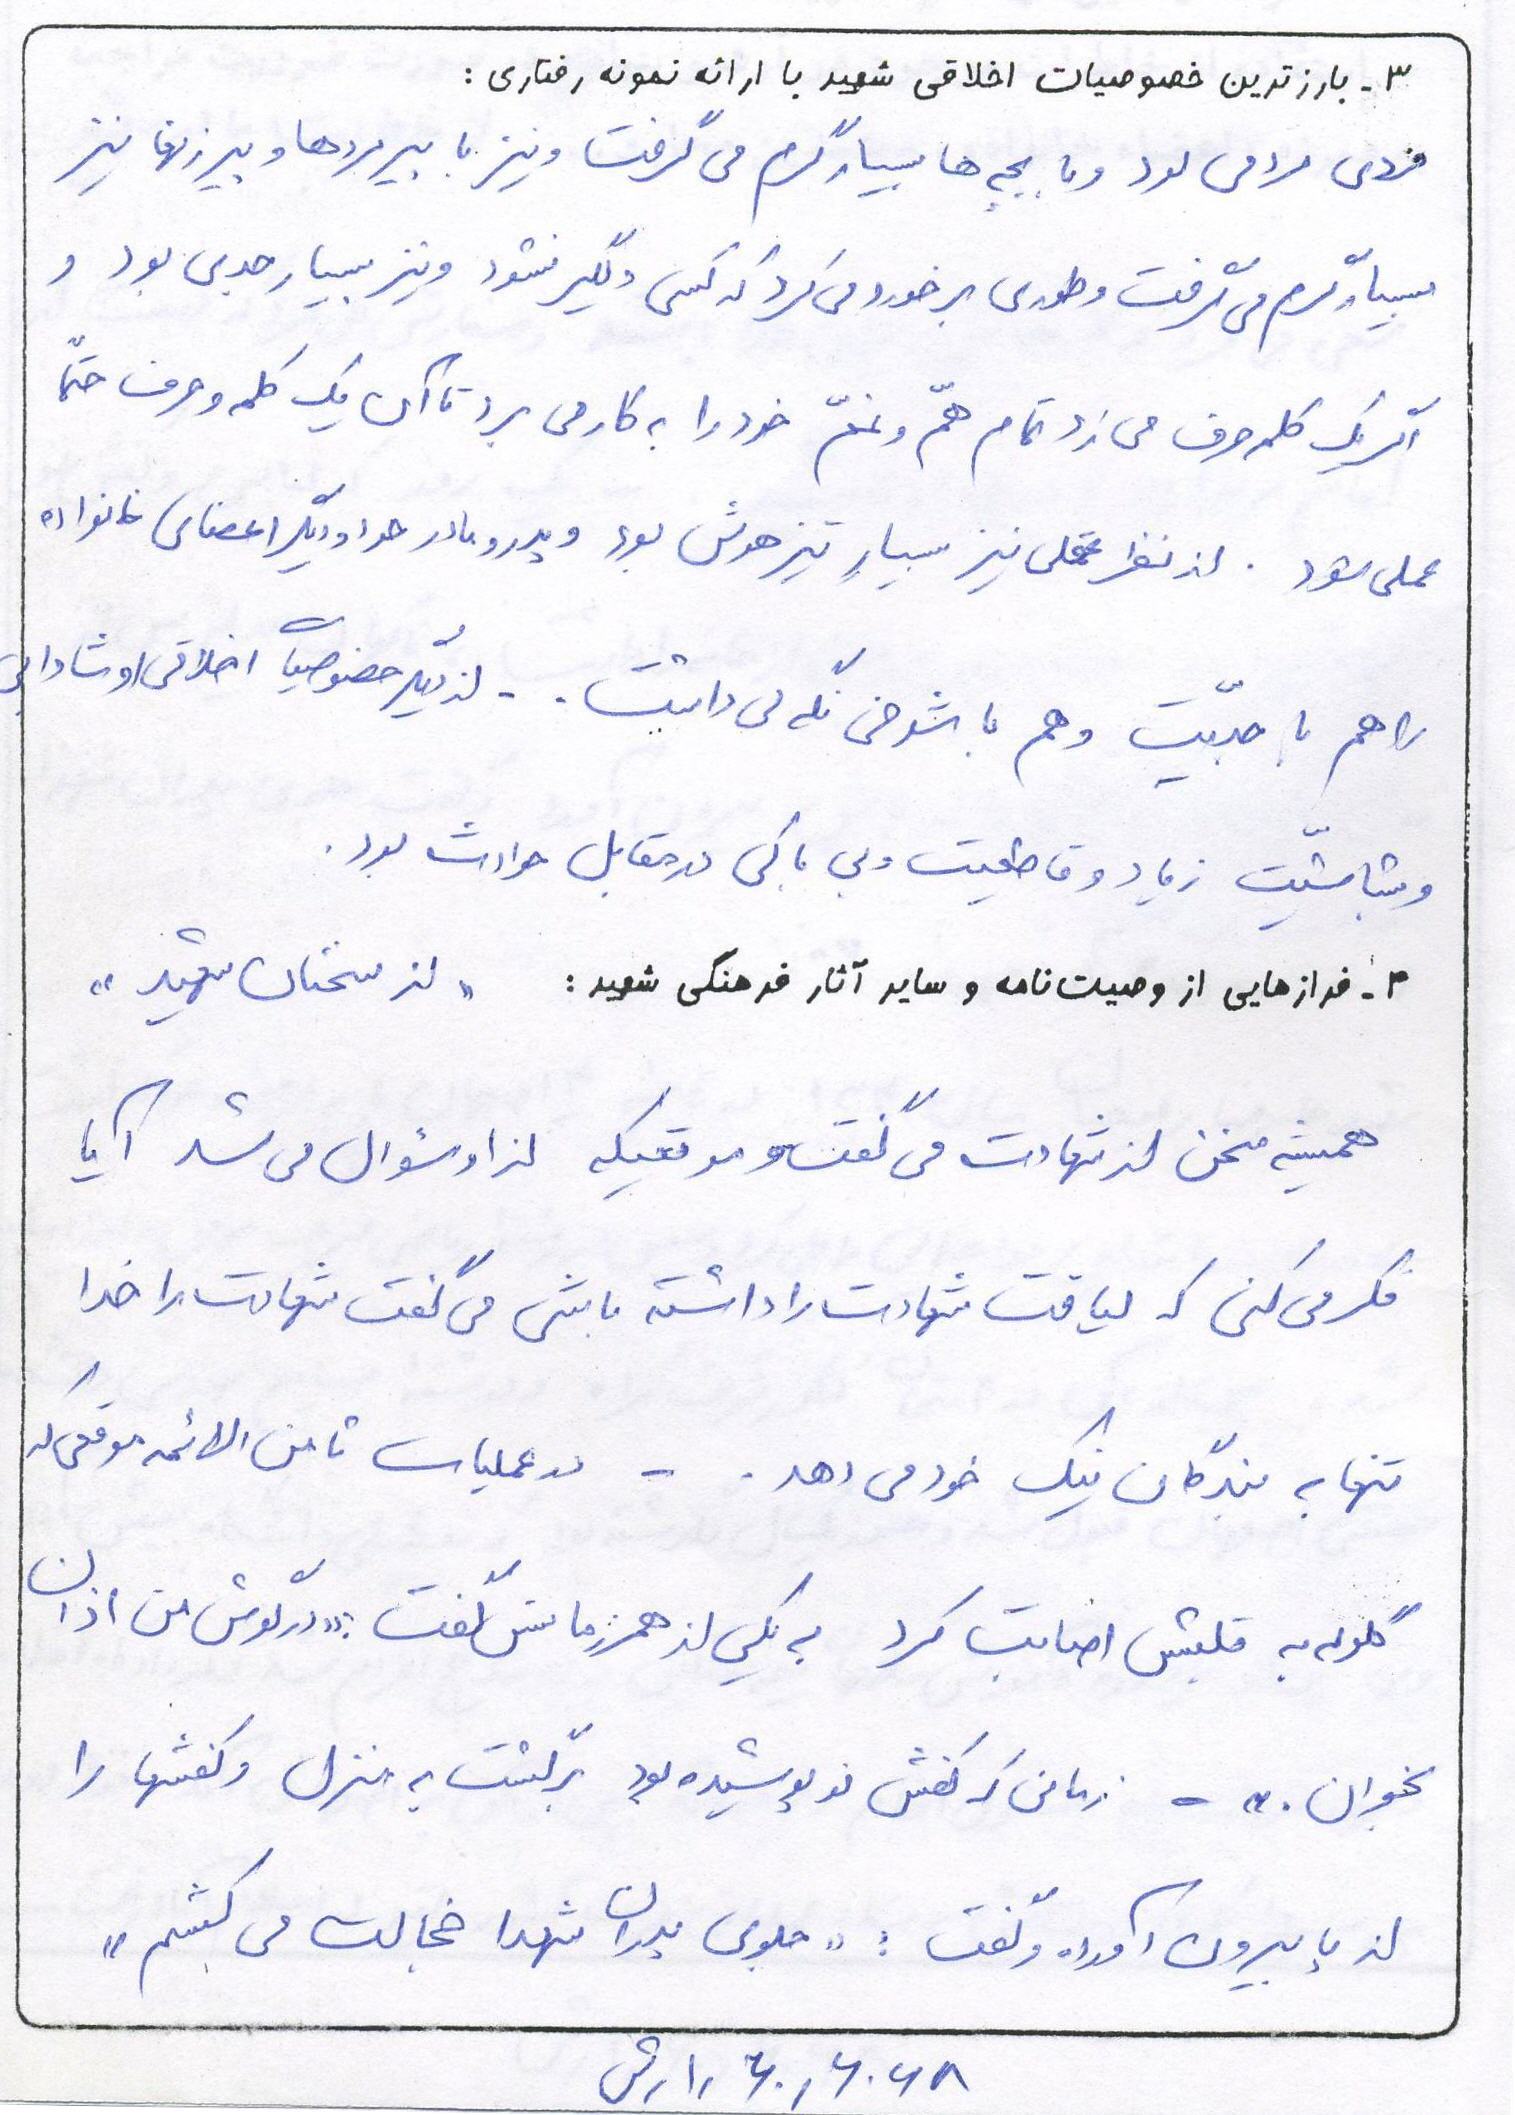 ۳- بارزترین خصوصیات اخلاقی شهید با ارائه نمونه رفتاری :
فردی مردمی بود و با بچه ها بسیار گرم می گرفت و نیز با پیرمردها و پیرزنها نیز
بسیار گرم می گرفت و طوری برخورد می کرد که کسی دلگیر نشود و نیز بسیار جدی بود و
اگر یک کلمه حرف می زد تمام همّ و غمّ خود را به کار می برد تا آن یک کلمه و حرف حتماً
عملی شود . از نظر عقلی نیز بسیار تیزهوش بود و پدر و مادر خود و دیگر اعضای خانواده
را هم با جدیّت و هم با شوخی نگه می داشت . - از دیگر خصوصیات اخلاقی او شادابی
و بشاشیّت زیاد و قاطعیت و بی باکی در مقابل حوادث بود .
۴- فرازهایی از وصیت نامه و سایر آثار فرهنگی شهید : « از سخنان شهید »
همیشه سخن از شهادت می گفت و موقعیکه از او سؤال می شد آیا
فکر می کنی که لیاقت شهادت را داشته باشی می گفت شهادت را خدا
تنها به بندگان نیک خود می دهد . - در عملیات ثامن الائمه موقعی که
گلوله به قلبش اصابت کرد به یکی از همرزمانش گفت : « در گوش من اذان
بخوان . » - زمانی که کفش نو پوشیده بود برگشت به منزل و کفشها را
از پا بیرون آورده و گفت : « جلوی پدران شهدا خجالت می کشم »